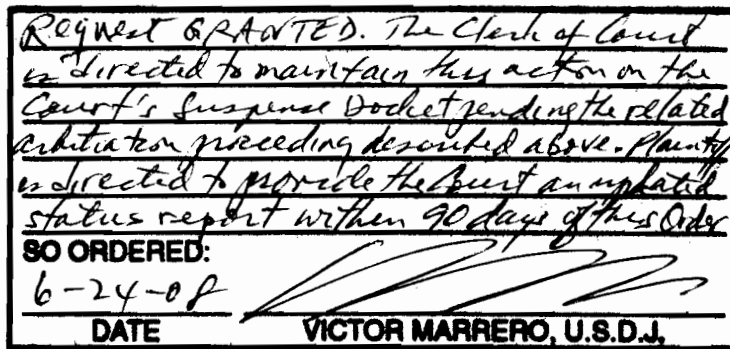 Request GRANTED. The Clerk of Court
is directed to maintain this action on the
Court's Suspense Docket pending the related
arbitration proceeding described above. Plaintiff
is directed to provide the Court an updated
status report within 90 days of this Order
SO ORDERED:
6-24-08
DATE VICTOR MARRERO, U.S.D.J.